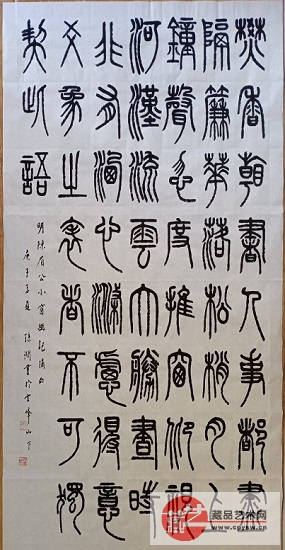 焚香看書人事都盡
隔簾華落松梢月上
鐘聲忽度推窗仰視
河漢流雲大勝晝時
非有洗心滌慮得意
爻象之表者不可獨
契此語
明陳眉公小窗幽記摘句
庚子夏書於雲峰山下
藏品艺术网
www.cpysw.cn